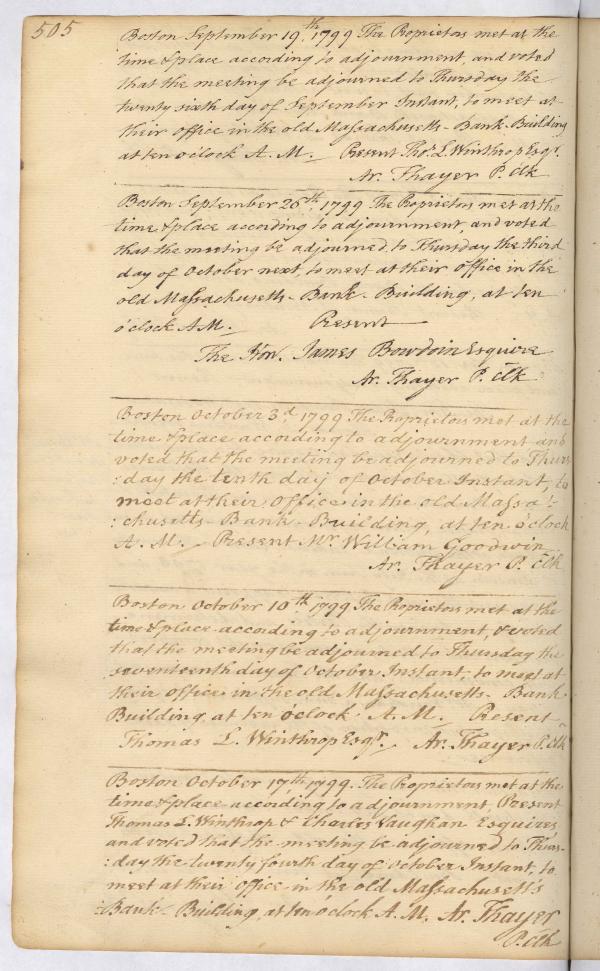 505
Boston September 19th, 1799 The Proprietors met at the
time & place according to adjournment, and voted
that the meeting be adjourned to Thursday the
twenty sixth day of September Instant, to meet at
their office in the old Massachusetts- Bank- Building
at ten o'clock A.M. Present Tho.s L. Winthrop Esqr.
Ar. Thayer P. Clk
Boston September 26th, 1799 The Proprietors met at the
time & place according to adjournment, and voted
that the meeting be adjourned, to Thursday the third
day of October next, to meet at their office in the
old Massachusetts- Bank- Building, at ten
o'clock AM. Present
The Hon. James Bowdoin Esquire
Ar. Thayer P. Clk
Boston October 3d, 1799 The Proprietors met at the
time & place according to adjournment and
voted that the meeting be adjourned to Thurs
:day the tenth day of October Instant, to
meet at their Office in the old Massa-
:chusetts- Bank- Building, at ten o'clock
A. M. Present Mr. William Goodwin
Ar. Thayer P. Clk
Boston October 10th, 1799 The Proprietors met at the
time & place according to adjournment, & voted
that the meeting be adjourned to Thursday the
seventeenth day of October Instant, to meet at
their office in the old Massachusetts- Bank
Building, at ten o'clock A. M. Present
Thomas L. Winthrop Esqr. Ar. Thayer P. Clk
Boston October 17th, 1799. The Proprietors met at the
time & place according to adjournment, Present
Thomas L. Winthrop & Charles Vaughan Esquires
and voted that the meeting be adjourned to Thurs-
:day the twenty fourth day of October Instant, to
meet at their office in the old Massachusetts
:Bank- Building, at ten o'clock A. M. Ar. Thayer
P. Clk